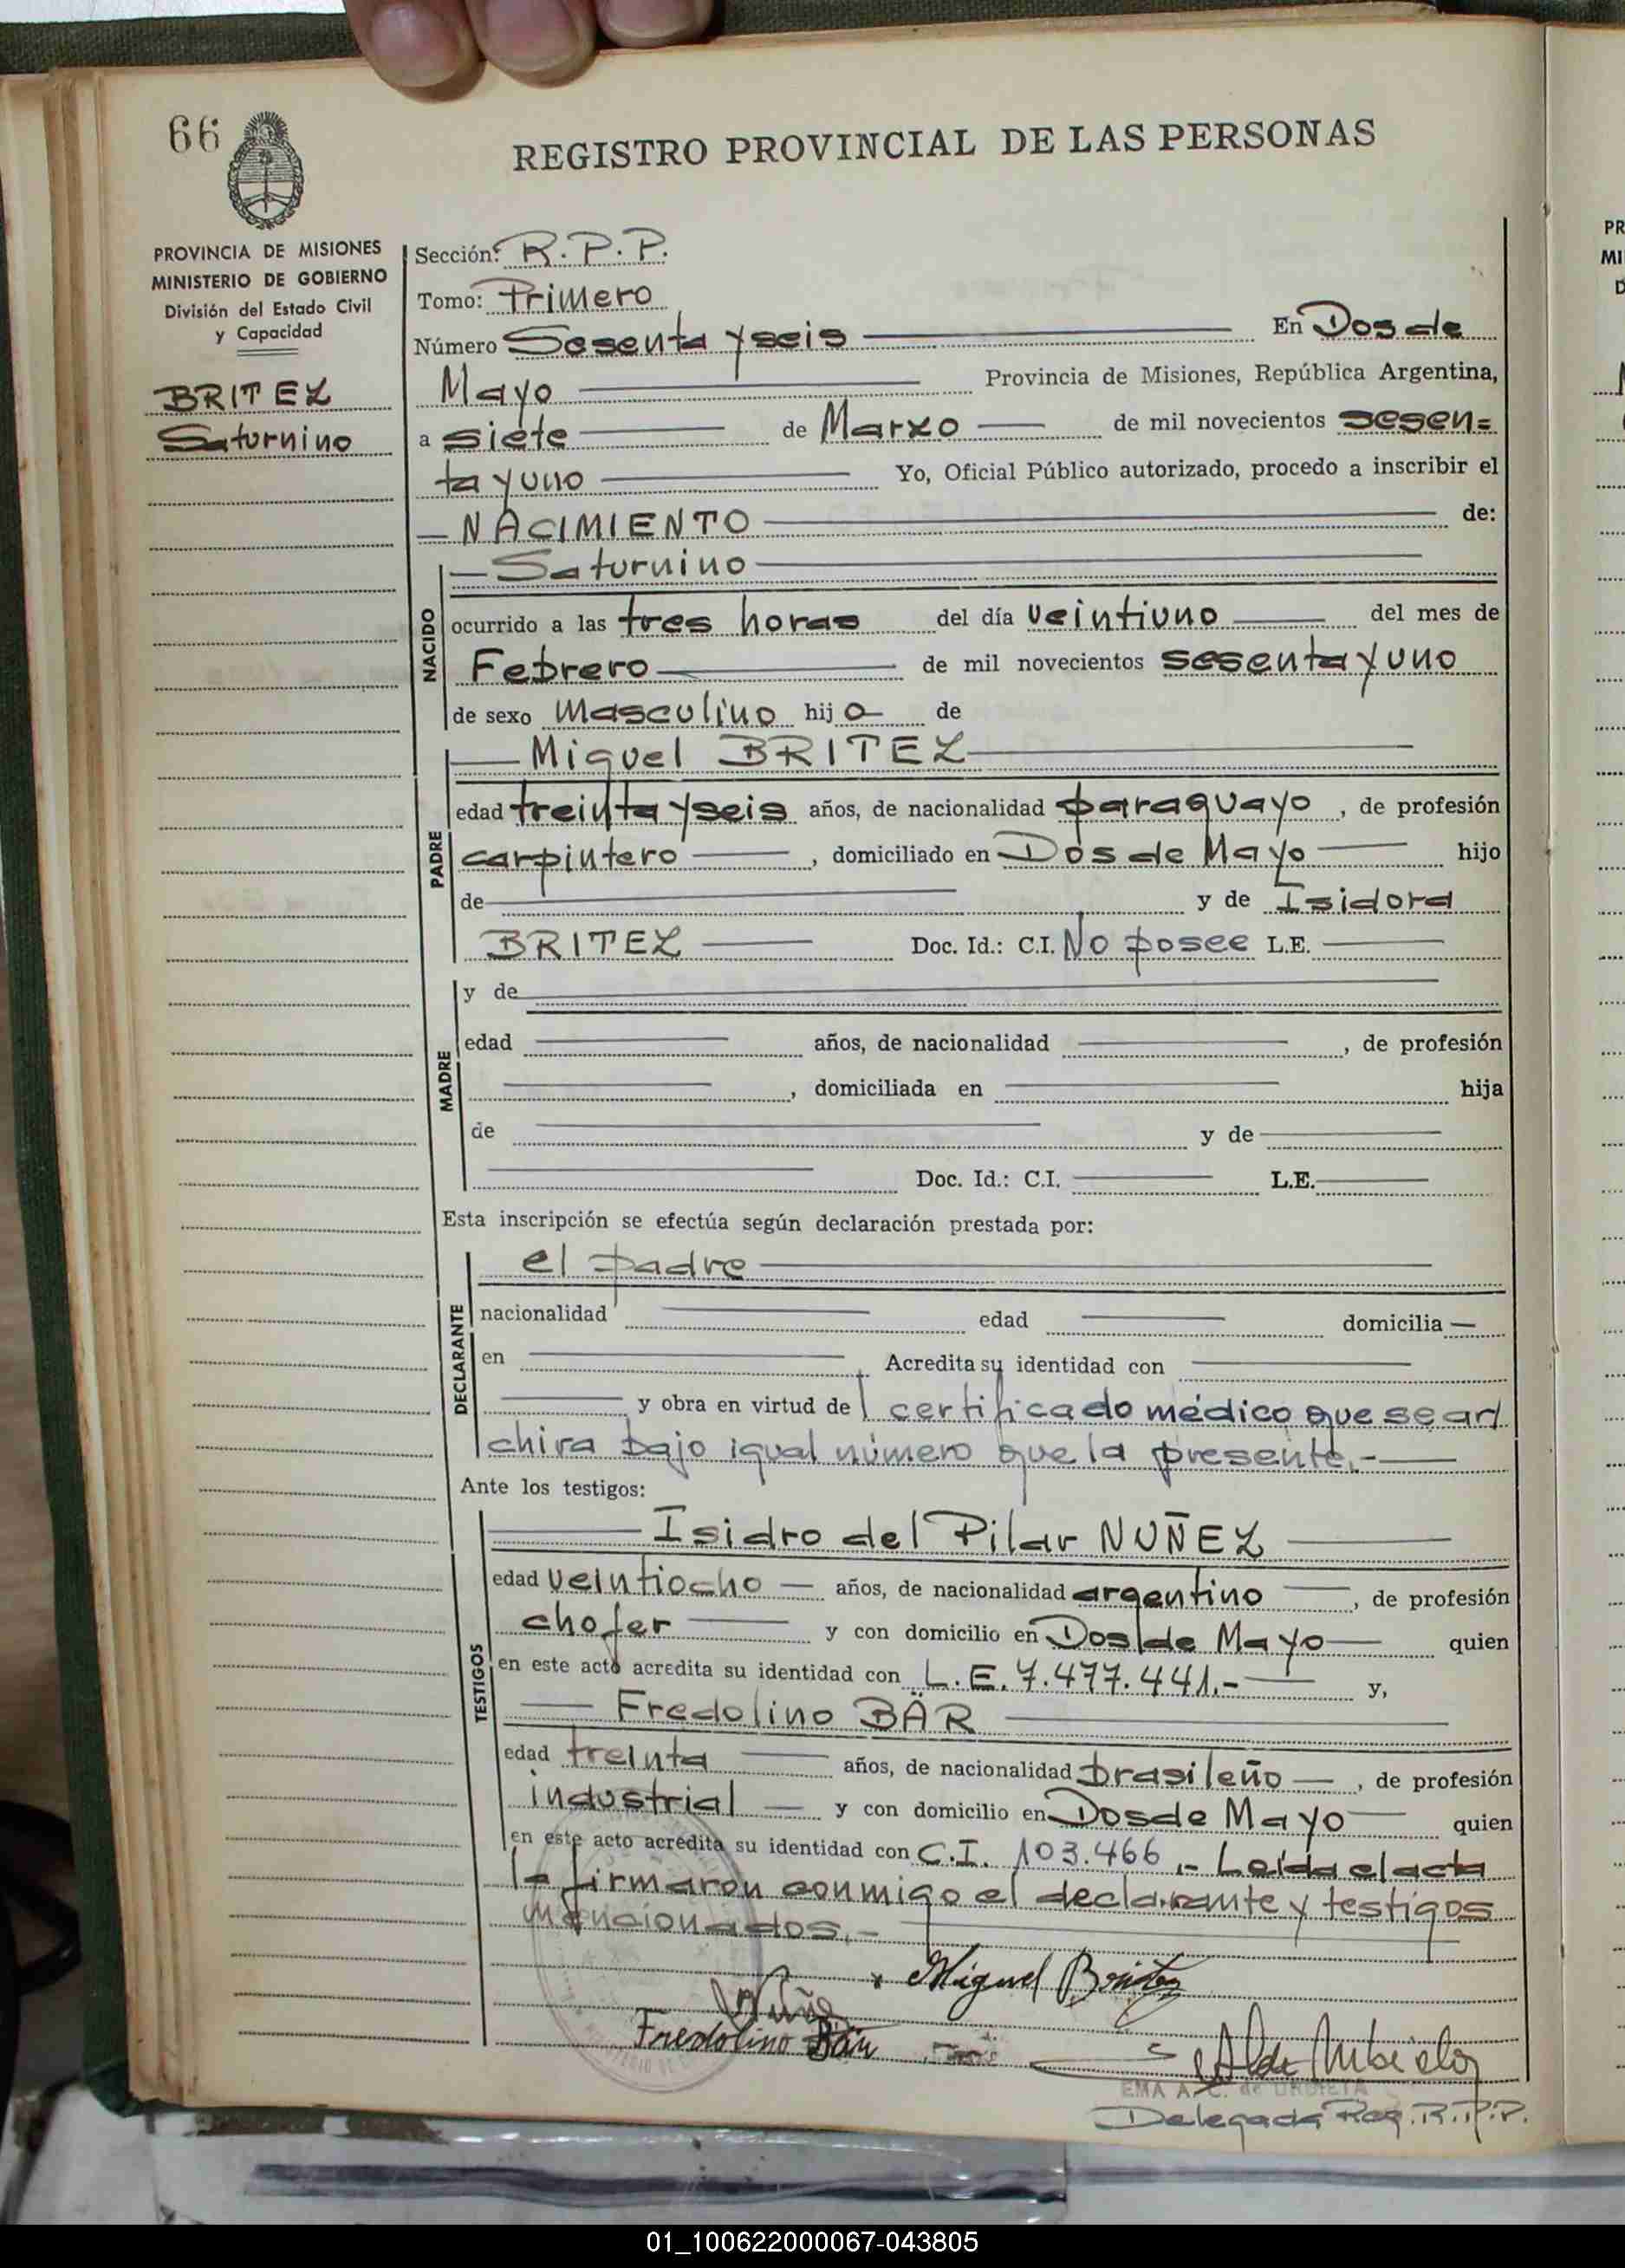 66
REGISTRO PROVINCIAL DE LAS PERSONAS
PROVINCIA DE MISIONES
MINISTERIO DE GOBIERNO
División del Estado Civil
y Capacidad
BRITEZ
Saturnino
Sección: R.P.P.
Tomo: Primero
Número Sesenta y seis En Dos de
Mayo Provincia de Misiones, República Argentina,
a siete de Marzo de mil novecientos sesen=
ta y uno Yo, Oficial Público autorizado, procedo a inscribir el
NACIMIENTO de:
NACIDO
Saturnino
ocurrido a las tres horas del día veintiuno del mes de
Febrero de mil novecientos sesenta y uno
de sexo Masculino hijo de
PADRE
Miguel BRITEZ
edad treinta y seis años, de nacionalidad paraguayo, de profesión
carpintero, domiciliado en Dos de Mayo hijo
de y de Isidora
BRITEZ Doc. Id.: C.I. No posee L.E.
MADRE
y de
edad años, de nacionalidad , de profesión
, domiciliada en hija
de y de
Doc. Id.: C.I. L.E.
Esta inscripción se efectúa según declaración prestada por:
DECLARANTE
el padre
nacionalidad edad domicilia
en Acredita su identidad con
y obra en virtud del certificado médico que se ar/
chiva bajo igual número que la presente.-
Ante los testigos:
TESTIGOS
Isidro del Pilar NUÑEZ
edad veintiocho años, de nacionalidad argentino, de profesión
chofer y con domicilio en Dos de Mayo quien
en este acto acredita su identidad con L.E. 7.477.441.- y,
Fredolino BÄR
edad treinta años, de nacionalidad brasileño, de profesión
industrial y con domicilio en Dos de Mayo quien
en este acto acredita su identidad con C.I. 103.466.- Leída el acta
la firmaron conmigo el declarante y testigos
mencionados.-
x Miguel Britez
Fredolino Bär
EMA A. C. de URBIETA
Delegada Reg. R.P.P.
PR
MI
D
01_100622000067-043805